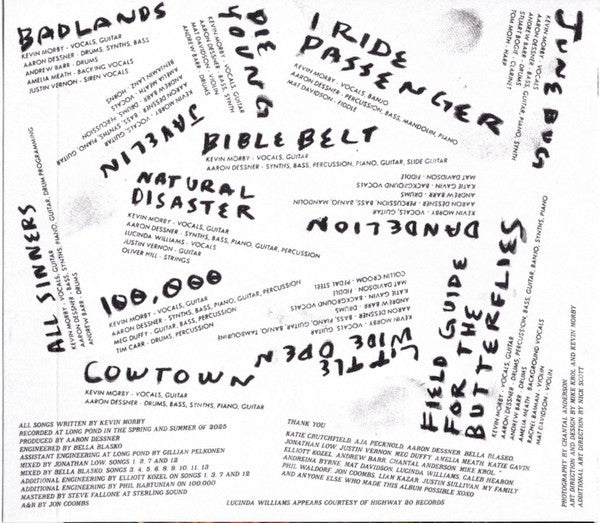 BADLANDS
KEVIN MORBY - VOCALS, GUITAR
AARON DESSNER - DRUMS, SYNTHS, BASS
ANDREW BARR - DRUMS
AMELIA MEATH - BACKING VOCALS
JUSTIN VERNON - SIREN VOCALS
DIE YOUNG
KEVIN MORBY - VOCALS, GUITAR
AARON DESSNER - BASS, SYNTH
MAT DAVIDSON - VIOLIN
ANDREW BARR - DRUMS
I RIDE PASSENGER
KEVIN MORBY - VOCALS, BANJO
AARON DESSNER - PERCUSSION, BASS, MANDOLIN, PIANO
MAT DAVIDSON - FIDDLE
JUNE BUG
KEVIN MORBY - VOCALS
AARON DESSNER - BASS, GUITAR, PIANO, SYNTH
ANDREW BARR - DRUMS
STUART BOGIE - CLARINET
TOM MOTH - HARP
JAVELIN
KEVIN MORBY - VOCALS, GUITAR
AARON DESSNER - BASS, SYNTHS, PIANO, GUITAR
ANDREW BARR - DRUMS, PERCUSSION
AMELIA MEATH - VOCALS
BENJAMIN LANZ - HORNS
BIBLE BELT
KEVIN MORBY - VOCALS, GUITAR
AARON DESSNER - SYNTHS, BASS, PERCUSSION, PIANO, GUITAR, SLIDE GUITAR
NATURAL DISASTER
KEVIN MORBY - VOCALS, GUITAR
AARON DESSNER - SYNTHS, BASS, PIANO, GUITAR, PERCUSSION
LUCINDA WILLIAMS - VOCALS
JUSTIN VERNON - GUITAR
OLIVER HILL - STRINGS
DANDELION
KEVIN MORBY - VOCALS, GUITAR
AARON DESSNER - PIANO, BASS, MANDOLIN
ANDREW BARR - DRUMS, PERCUSSION
KATIE GAVIN - BACKGROUND VOCALS
MAT DAVIDSON - FIDDLE
ALL SINNERS
KEVIN MORBY - VOCALS, GUITAR
AARON DESSNER - BASS, SYNTHS, PIANO, GUITAR, DRUM PROGRAMMING
ANDREW BARR - DRUMS
100,000
KEVIN MORBY - VOCALS, GUITAR
AARON DESSNER - SYNTHS, BASS, PIANO, GUITAR, PERCUSSION
MEG DUFFY - GUITAR, BASS, PERCUSSION
TIM CARR - DRUMS, PERCUSSION
LITTLE WIDE OPEN
KEVIN MORBY - VOCALS, GUITAR
AARON DESSNER - BASS, PIANO, GUITAR, BANJO, TAMBOURINE
ANDREW BARR - DRUMS
KATIE GAVIN - BACKGROUND VOCALS
MAT DAVIDSON - FIDDLE
COLLIN CROOM - PEDAL STEEL
FIELD GUIDE FOR THE BUTTERFLIES
KEVIN MORBY - VOCALS, GUITAR
AARON DESSNER - DRUMS, PERCUSSION, BASS, GUITAR, BANJO, SYNTHS, PIANO
ANDREW BARR - DRUMS
AMELIA MEATH - BACKGROUND VOCALS
RACHEL BAIMAN - VIOLIN
MAT DAVIDSON - VIOLIN
COWTOWN
KEVIN MORBY - VOCALS, GUITAR
AARON DESSNER - DRUMS, BASS, SYNTHS, PIANO, GUITAR
ALL SONGS WRITTEN BY KEVIN MORBY
RECORDED AT LONG POND IN THE SPRING AND SUMMER OF 2025
PRODUCED BY AARON DESSNER
ENGINEERED BY BELLA BLASKO
ASSISTANT ENGINEERING AT LONG POND BY GILLIAN PELKONEN
MIXED BY JONATHAN LOW: SONGS 1, 3, 7 AND 12
MIXED BY BELLA BLASKO: SONGS 2, 4, 5, 6, 8, 9, 10, 11, 13
ADDITIONAL ENGINEERING BY ELLIOTT KOZEL ON SONGS 1, 3, 7 AND 12
ADDITIONAL ENGINEERING BY PHIL HARTUNIAN ON 100,000
MASTERED BY STEVE FALLONE AT STERLING SOUND
A&R BY JON COOMBS
THANK YOU
KATIE CRUTCHFIELD, AJA PECKNOLD, AARON DESSNER, BELLA BLASKO,
JONATHAN LOW, JUSTIN VERNON, MEG DUFFY, AMELIA MEATH, KATIE GAVIN
ELLIOTT KOZEL, ANDREW BARR, CHANTAL ANDERSON, MIKE KROL,
ANDREINA BYRNE, MAT DAVIDSON, LUCINDA WILLIAMS, CALEB HEARON
PHIL WALDORF, JON COOMBS, LIAM KAZAR, JUSTIN SULLIVAN, MY FAMILY
AND ANYONE ELSE WHO MADE THIS ALBUM POSSIBLE XOXO
LUCINDA WILLIAMS APPEARS COURTESY OF HIGHWAY 20 RECORDS
PHOTOGRAPHY BY CHANTAL ANDERSON
ART DIRECTION AND DESIGN BY MIKE KROL AND KEVIN MORBY
ADDITIONAL ART DIRECTION BY NICK SCOTT